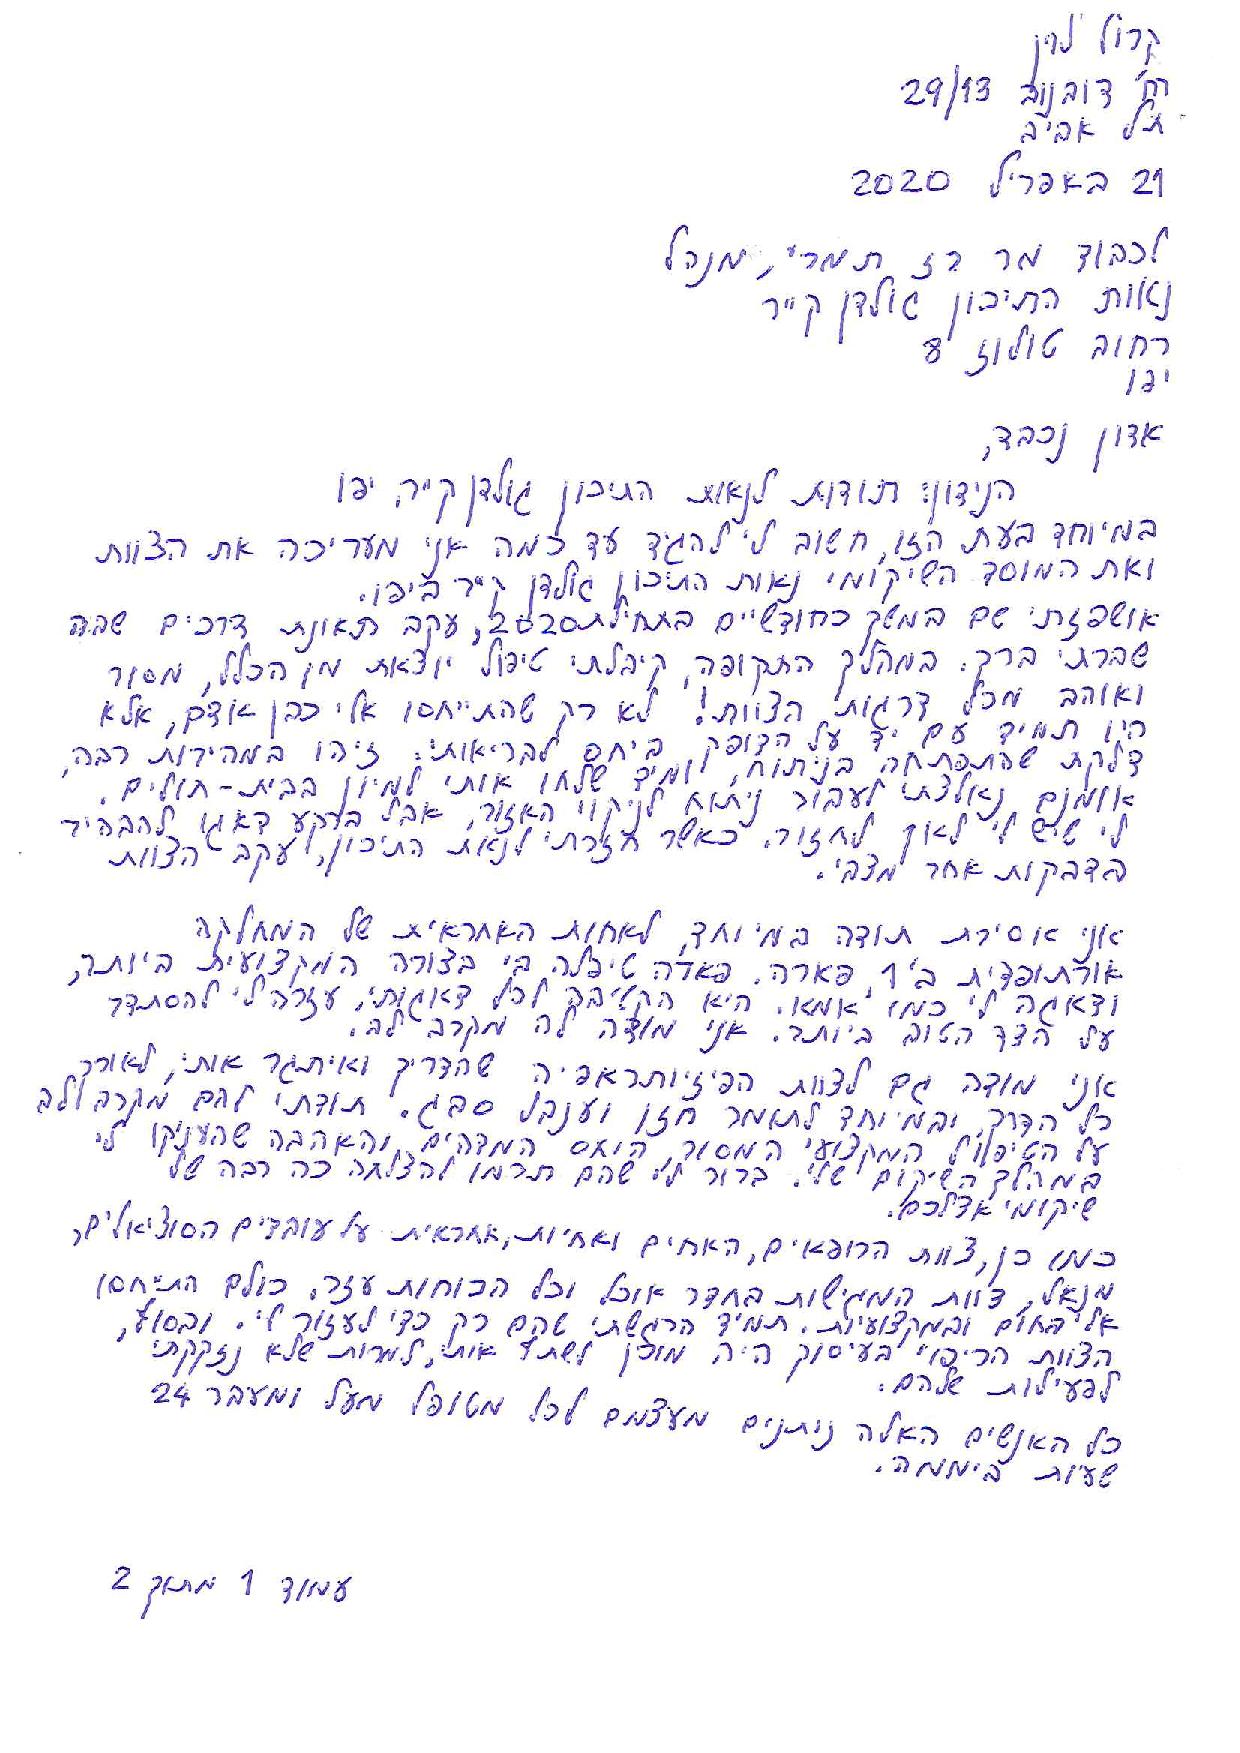 קרול לוין
רח' דובנוב 29/13
תל אביב
21 באפריל 2020
לכבוד מר רז תמרי, מנהל
נאות התיכון גולדן קייר
רחוב טולוז 8
יפו
אדון נכבד,
הנידון: תודות לנאות התיכון גולדן קייר, יפו
במיוחד בעת הזו, חשוב לי להגיד עד כמה אני מעריכה את הצוות
ואת המוסד השיקומי נאות התיכון גולדן קייר ביפו.
אושפזתי שם במשך כחודשיים בתחילת 2020, עקב תאונת דרכים שבה
שברתי ברך. במהלך התקופה, קיבלתי טיפול יוצאת מן הכלל, מסור
ואוהב מכל דרגות הצוות! לא רק שהתייחסו אלי כבן אודם, אלא
היו תמיד עם יד על הדופק ביחס לבריאותי: זיהו במהידות רבה,
דלקת שהתפתחה בניתוח, ומיד שלחו אותי למיון בבית-חולים.
אומנם נאלצתי לעבור ניתוח לניקוי האזור, אבל ברקע דאגו להבהיר
לי שיש לי לאן לחזור. כאשר חזרתי לנאת התיכון, עקב הצוות
בדבקות אחר מצבי.
אני אסירת תודה במיוחד, לאחות האחראית של המחלקה
אורתופדית ב'1, פארה. פאדה טיפלה בי בצורה המקצועית ביותר,
ודאגה לי כמו אמא. היא הקשיבה לכל דאגותי, עזרה לי להסתדר
על הצד הטוב ביותר. אני מודה לה מקרב לב.
אני מודה גם לצוות הפיזיותראפיה שהדריך ואיתגר אותי, לאורך
כל הדרך, ובמיוחד לתאמר חזן וענבל סבג. תודתי להם מקרב ולב
על הטיפול המקצועי המסור, היחס המדהים והאהבה שהעניקו לי
במהלך השיקום שלי. ברור לי שהם תרמו להצלחה כה רבה של
שיקומי אצלכם.
כמו כן, צוות הרופאים, האחים ואחיות, אחראית על עובדים הסוציאלים,
מנאל, צוות המגישות בחדר אוכל וכל הכוחות עזר. כולם התייחסו
אלי בחום ובמקצועיות. תמיד הרגשתי שהם רק כדי לעזור לי. ובסוף,
הצוות הריפוי בעיסוק היה מוכן לשתף אותי, למרות שלא נזקקתי
לפעילות שלהם.
כל האנשים האלה נותנים מעצמם לכל מטופל מעל ומעבר 24
שעות ביממה.
עמוד 1 מתוך 2